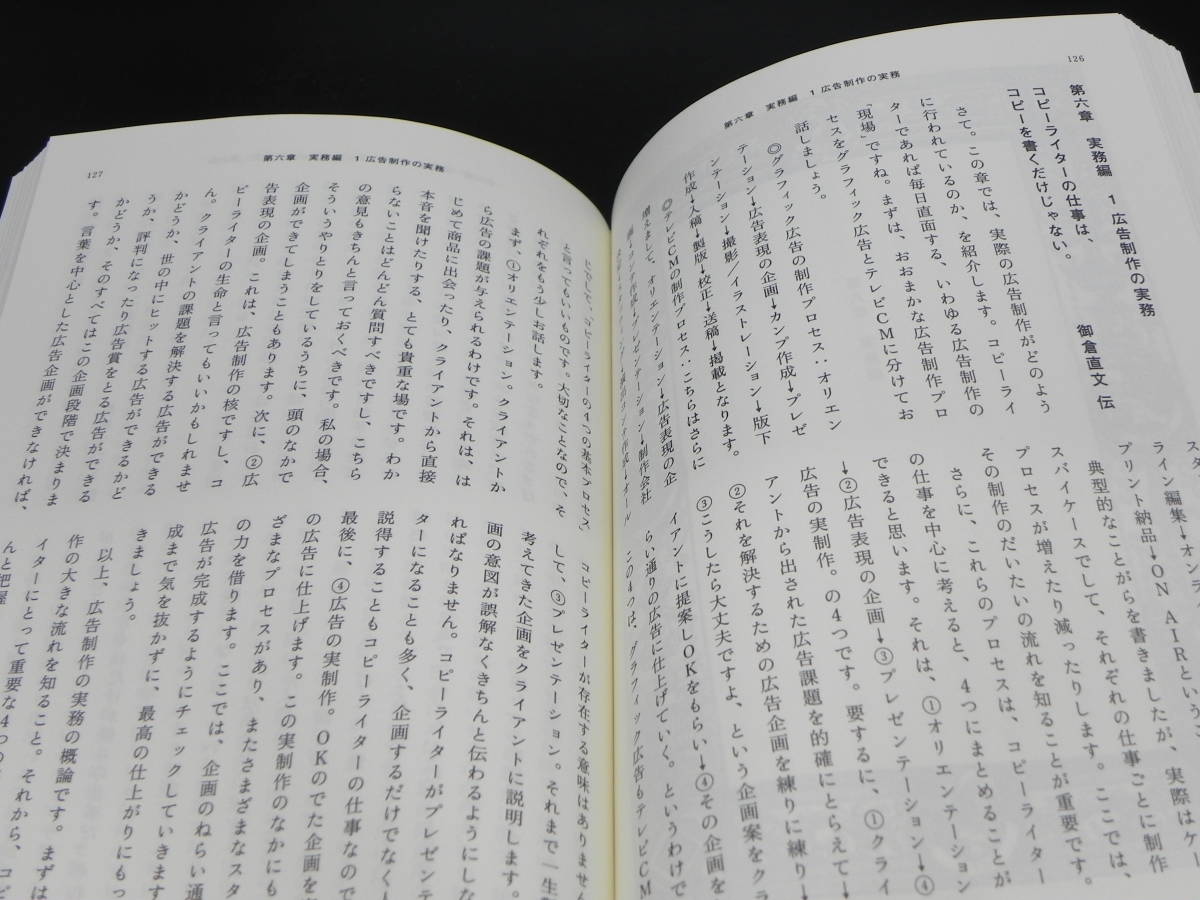 126
第六章　実務編　1 広告制作の実務
第六章　実務編　1 広告制作の実務
コピーライターの仕事は、
コピーを書くだけじゃない。
御倉直文 伝
さて。この章では、実際の広告制作がどのよう
に行われているのか、を紹介します。コピーライ
ターであれば毎日直面する、いわゆる広告制作の
「現場」ですね。まずは、おおまかな広告制作プロ
セスをグラフィック広告とテレビCMに分けてお
話しましょう。
◎グラフィック広告の制作プロセス：オリエン
テーション→広告表現の企画→カンプ作成→プレゼ
ンテーション→撮影/イラストレーション→版下
作成→入稿→製版→校正→送稿→掲載となります。
◎テレビCMの制作プロセス：こちらはさらに
増えまして、オリエンテーション→広告表現の企
画→コンテ作成→プレゼンテーション→制作会社
スタ
ライン編集→オン
プリント納品→ON AIRという
典型的なことがらを書きましたが、実際はケー
スバイケースでして、それぞれの仕事ごとに制作
プロセスが増えたり減ったりします。ここでは、
その制作のだいたいの流れを知ることが重要です。
さらに、これらのプロセスは、コピーライター
の仕事を中心に考えると、4つにまとめることが
できると思います。それは、①オリエンテーション
→②広告表現の企画→③プレゼンテーション→④
広告の実制作。の4つです。要するに、①クライ
アントから出された広告課題を的確にとらえて→
②それを解決するための広告企画を練りに練り→
③こうしたら大丈夫ですよ、という企画案をクラ
イアントに提案しOKをもらい→④その企画を
らい通りの広告に仕上げていく。というわけで
この4つは、グラフィック広告もテレビCM
127
第六章　実務編　1 広告制作の実務
コピーライターの4つの基本プロセス
と言ってもいいものです。大切なことなので、そ
れぞれをもう少しお話します。
まず、①オリエンテーション。クライアントか
ら広告の課題が与えられるわけです。それは、は
じめて商品に出会ったり、クライアントから直接
本音を聞けたりする、とても貴重な場です。わか
らないことはどんどん質問すべきですし、こちら
の意見もきちんと言っておくべきです。私の場合、
そういうやりとりをしているうちに、頭のなかで
企画ができてしまうこともあります。次に、②広
告表現の企画。これは、広告制作の核ですし、コ
ピーライターの生命と言ってもいいかもしれませ
ん。クライアントの課題を解決する広告ができる
かどうか、世の中にヒットする広告ができるかど
うか、評判になったり広告賞をとる広告ができる
かどうか、そのすべてはこの企画段階で決まりま
す。言葉を中心とした広告企画ができなければ、
コピーライターが存在する意味はありません
して、③プレゼンテーション。それまで一生
考えてきた企画をクライアントに説明します。
画の意図が誤解なくきちんと伝わるようにし
ればなりません。コピーライターがプレゼン
ターになることも多く、企画するだけでなく
説得することもコピーライターの仕事なので
最後に、④広告の実制作。OKのでた企画を
の広告に仕上げます。この実制作のなかにも
ざまなプロセスがあり、またさまざまなスタ
の力を借ります。ここでは、企画のねらい通
広告が完成するようにチェックしていきます
成まで気を抜かずに、最高の仕上がりにもっ
きましょう。
以上、広告制作の実務の概論です。まずは
作の大きな流れを知ること。それから、コピ
イターにとって重要な4つの
んと把握